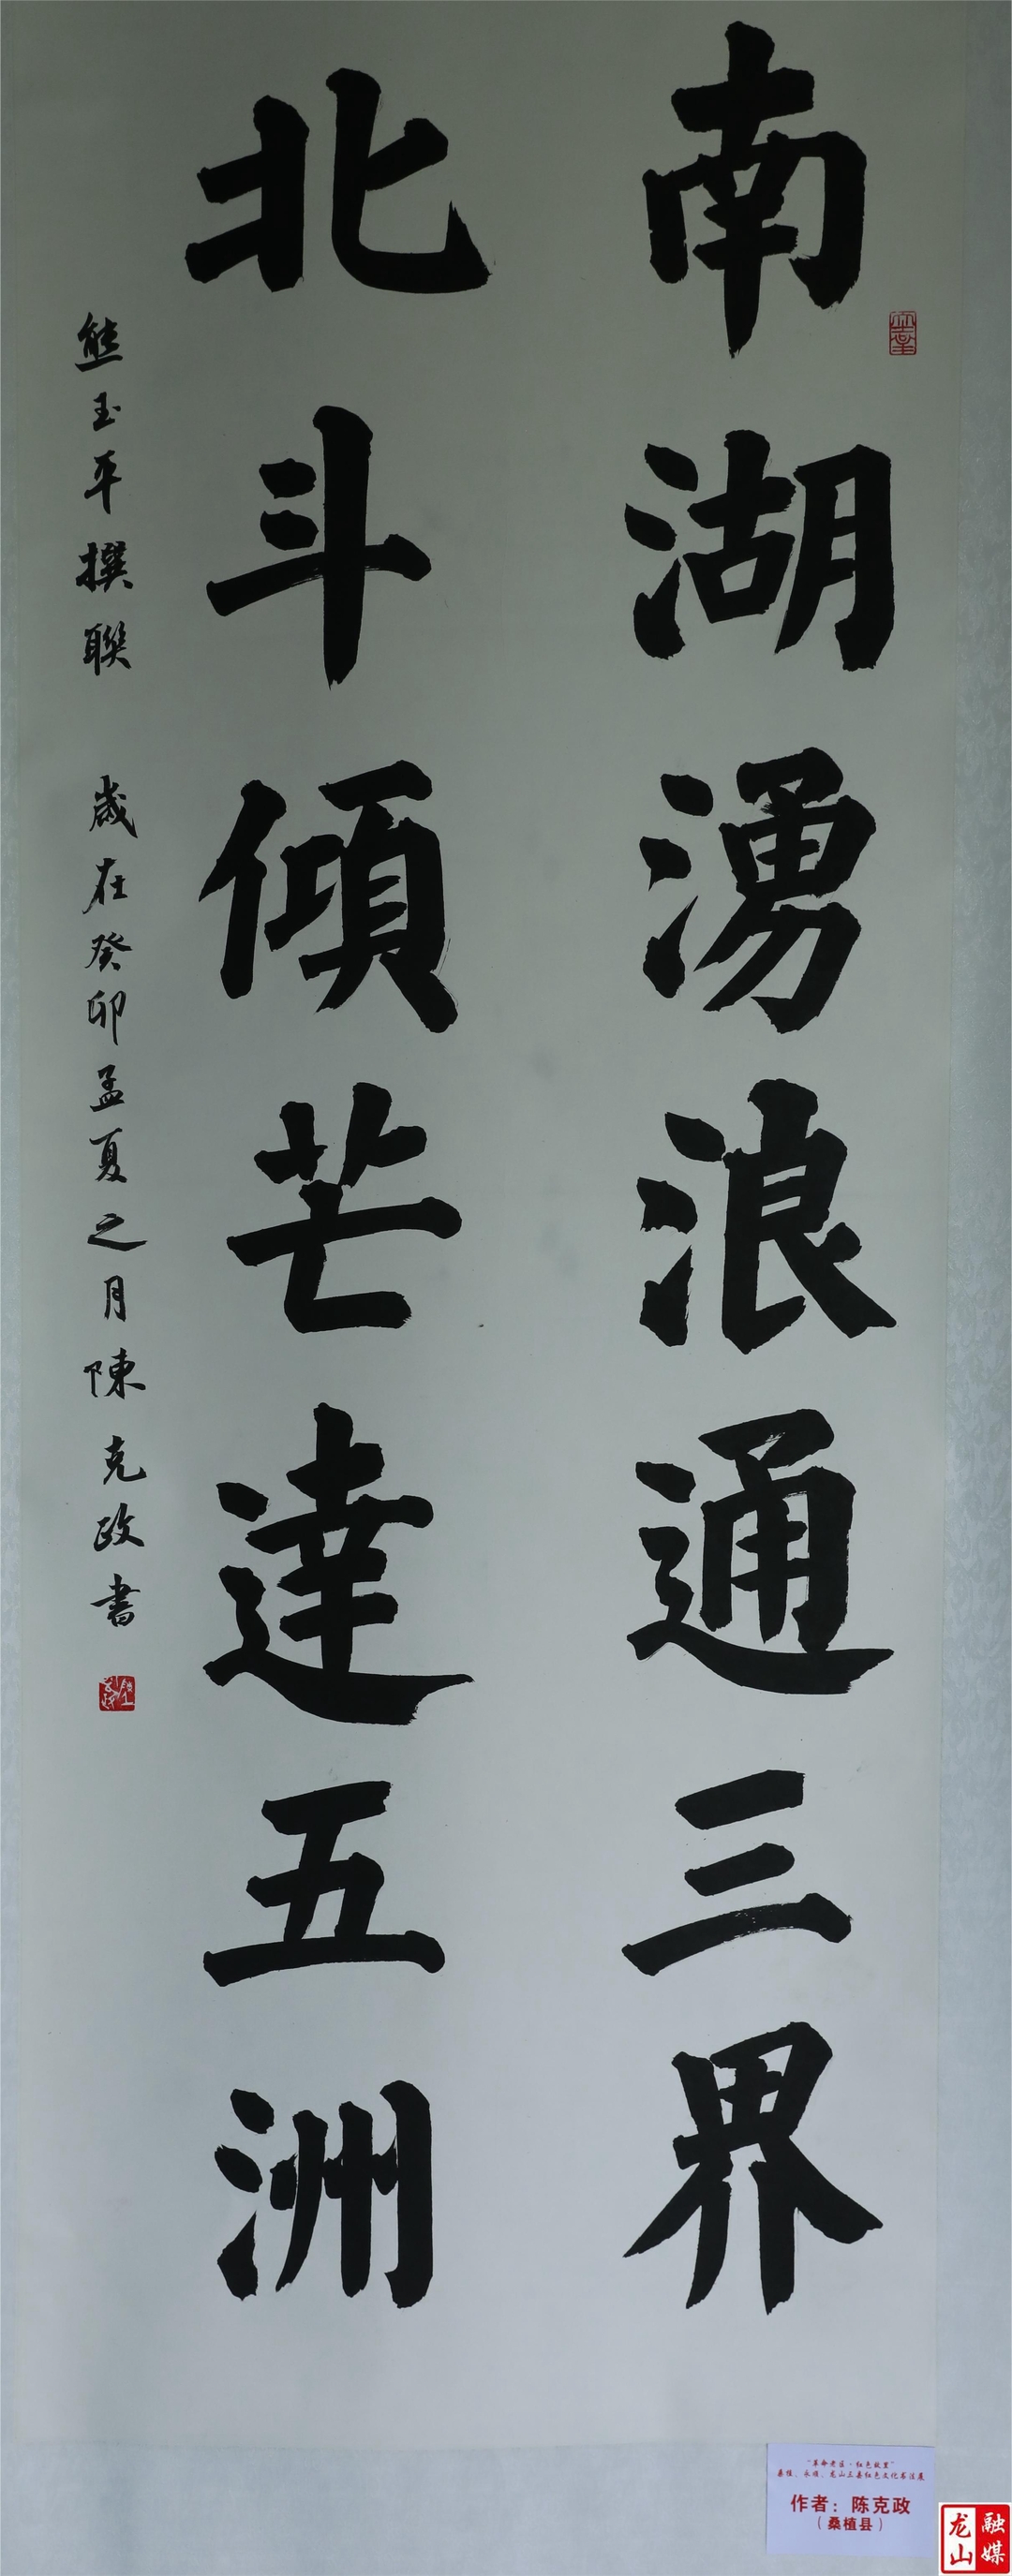 南湖湧浪通三界
北斗傾芒達五洲
熊玉平撰聯 歲在癸卯孟夏之月陳克政書
“革命老区·红色故里”
桑植、永顺、龙山三县红色文化书法展
作者：陈克政
（桑植县）
龙山
融媒